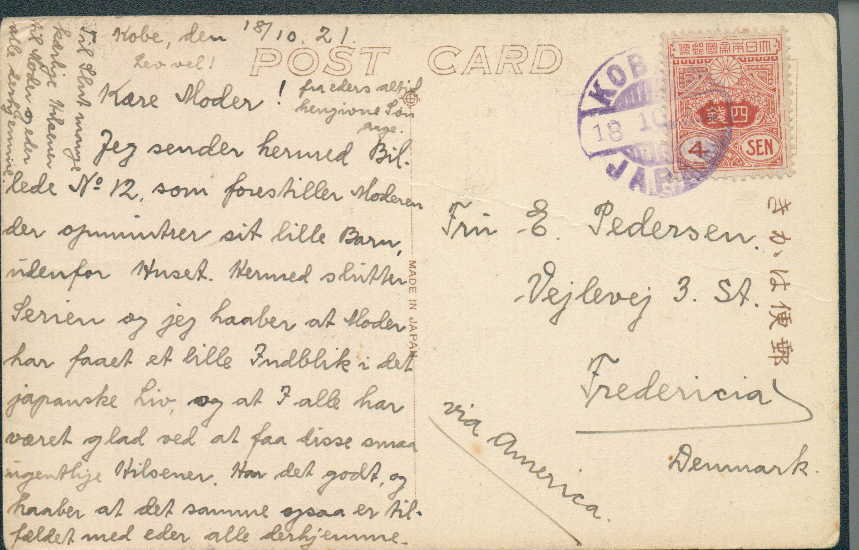 Kobe, den 18/10. 21.
Lev vel!
POST CARD
Kære Moder!
fra eders altid
hengivne Søn
Aage.
Til Slut mange
kærlige Hilsener
til Moder og eder
alle derhjemme.
Jeg sender hermed Bil-
lede No 12, som forestiller Moderen
der opmuntrer sit lille Barn,
udenfor Huset. Hermed slutter
Serien og jeg haaber at Moder
har faaet et lille Indblik i det
japanske Liv, og at I alle har
været glad ved at faa disse smaa
ugentlige Hilsener. Har det godt, og
haaber at det samme ogsaa er til-
fældet med eder alle derhjemme.
MADE IN JAPAN
KOB
18 10
JAPA
大日本帝國郵便
四錢
4 SEN
きかは便郵
Fru E. Pedersen.
Vejlevej 3. St.
Fredericia
Denmark.
via America.